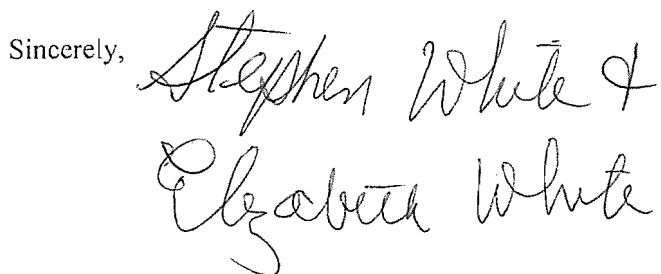 Sincerely, Stephen White &
Elizabeth White